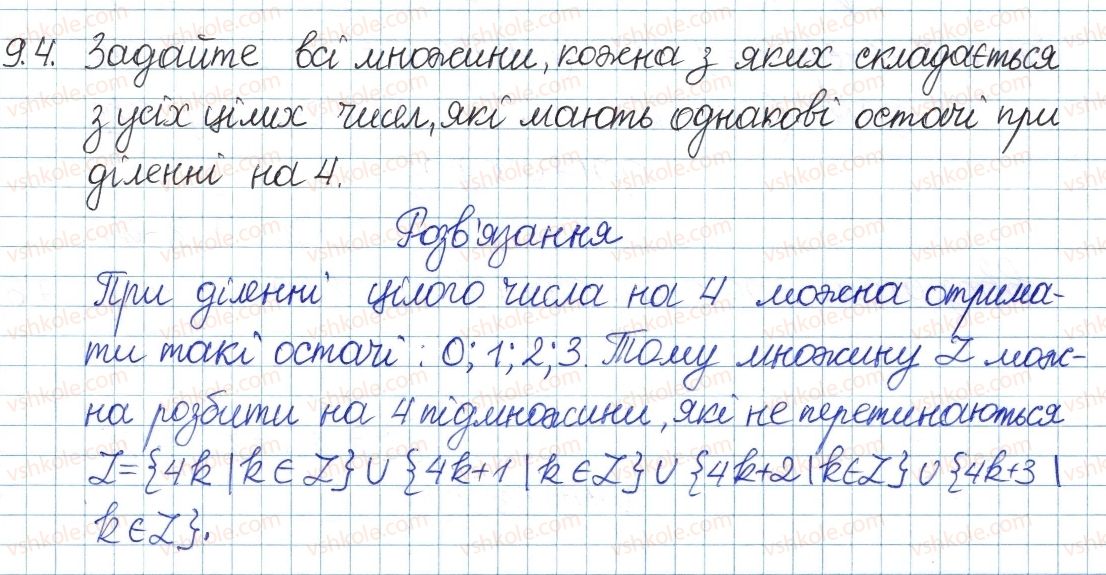 9.4. Задайте всі множини, кожна з яких складається
з усіх цілих чисел, які мають однакові остачі при
діленні на 4.
Розв'язання
При діленні цілого числа на 4 можна отрима-
ти такі остачі: 0; 1; 2; 3. Тому множину Z мож-
на розбити на 4 підмножини, які не перетинаються
Z = {4k | k ∈ Z} ∪ {4k+1 | k ∈ Z} ∪ {4k+2 | k ∈ Z} ∪ {4k+3 |
k ∈ Z}.
vshkole.com